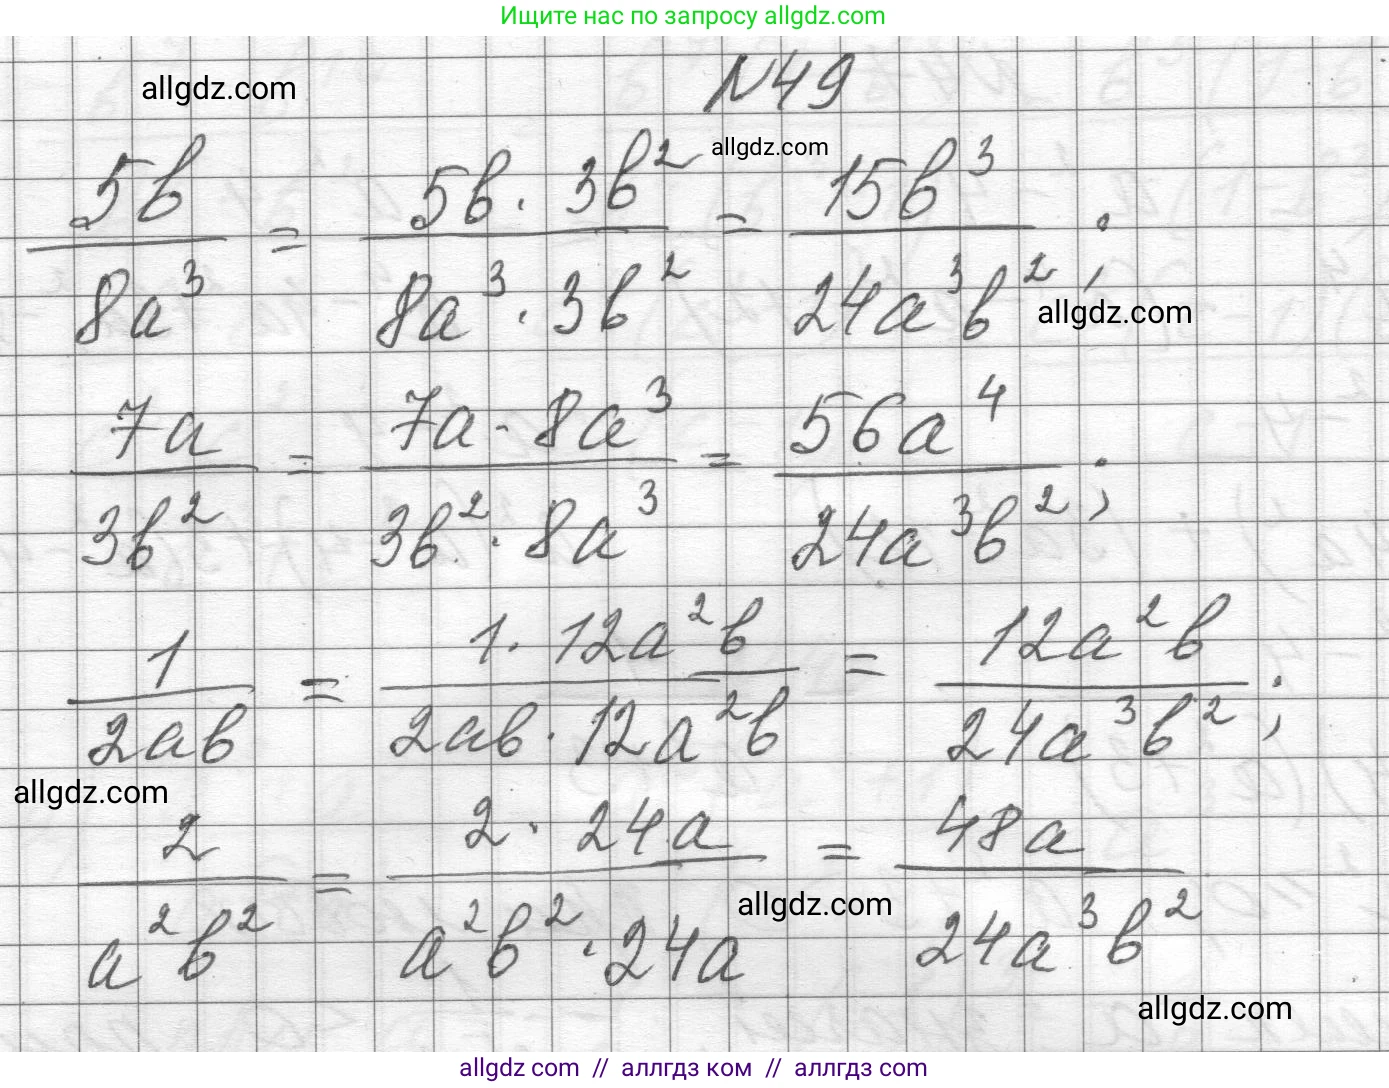 Ищите нас по запросу allgdz.com
allgdz.com
N49
allgdz.com
5b/8a³ = 5b · 3b²/8a³ · 3b² = 15b³/24a³b²;
allgdz.com
7a/3b² = 7a · 8a³/3b² · 8a³ = 56a⁴/24a³b²;
1/2ab = 1 · 12a²b/2ab · 12a²b = 12a²b/24a³b²;
allgdz.com
2/a²b² = 2 · 24a/a²b² · 24a = 48a/24a³b²
allgdz.com
allgdz.com
allgdz.com // аллгдз ком // аллгдз com